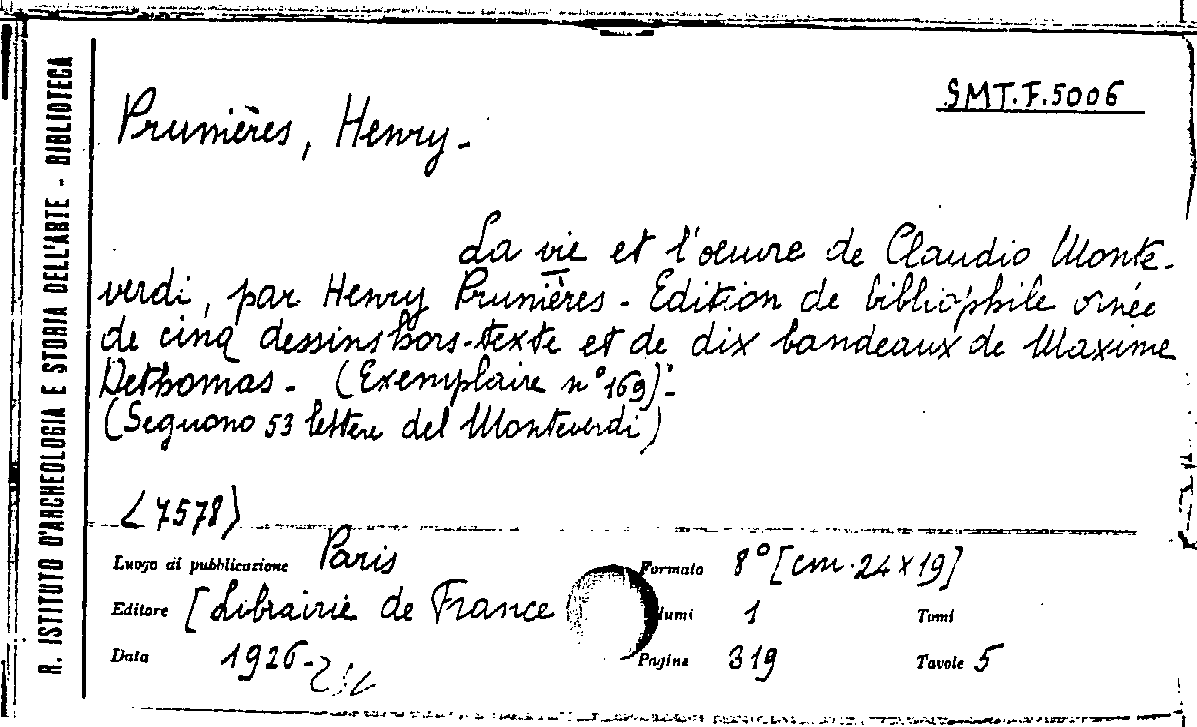 R. ISTITUTO D'ARCHEOLOGIA E STORIA DELL'ARTE - BIBLIOTECA
SMT.F.5006
Prunières, Henry.
La vie et l'oeuvre de Claudio Monte-
verdi, par Henry Prunières - Edition de bibliophile ornée
de cinq dessins hors-texte et de dix bandeaux de Maxime
Dethomas - (Exemplaire n° 169).-
(Seguono 53 lettere del Monteverdi)
<7578>
Luogo di pubblicazione Paris
Formato 8° [cm. 24 x 19]
Editore [Librairie de France
lumi 1 Tomi
Data 1926
Pagine 319 Tavole 5